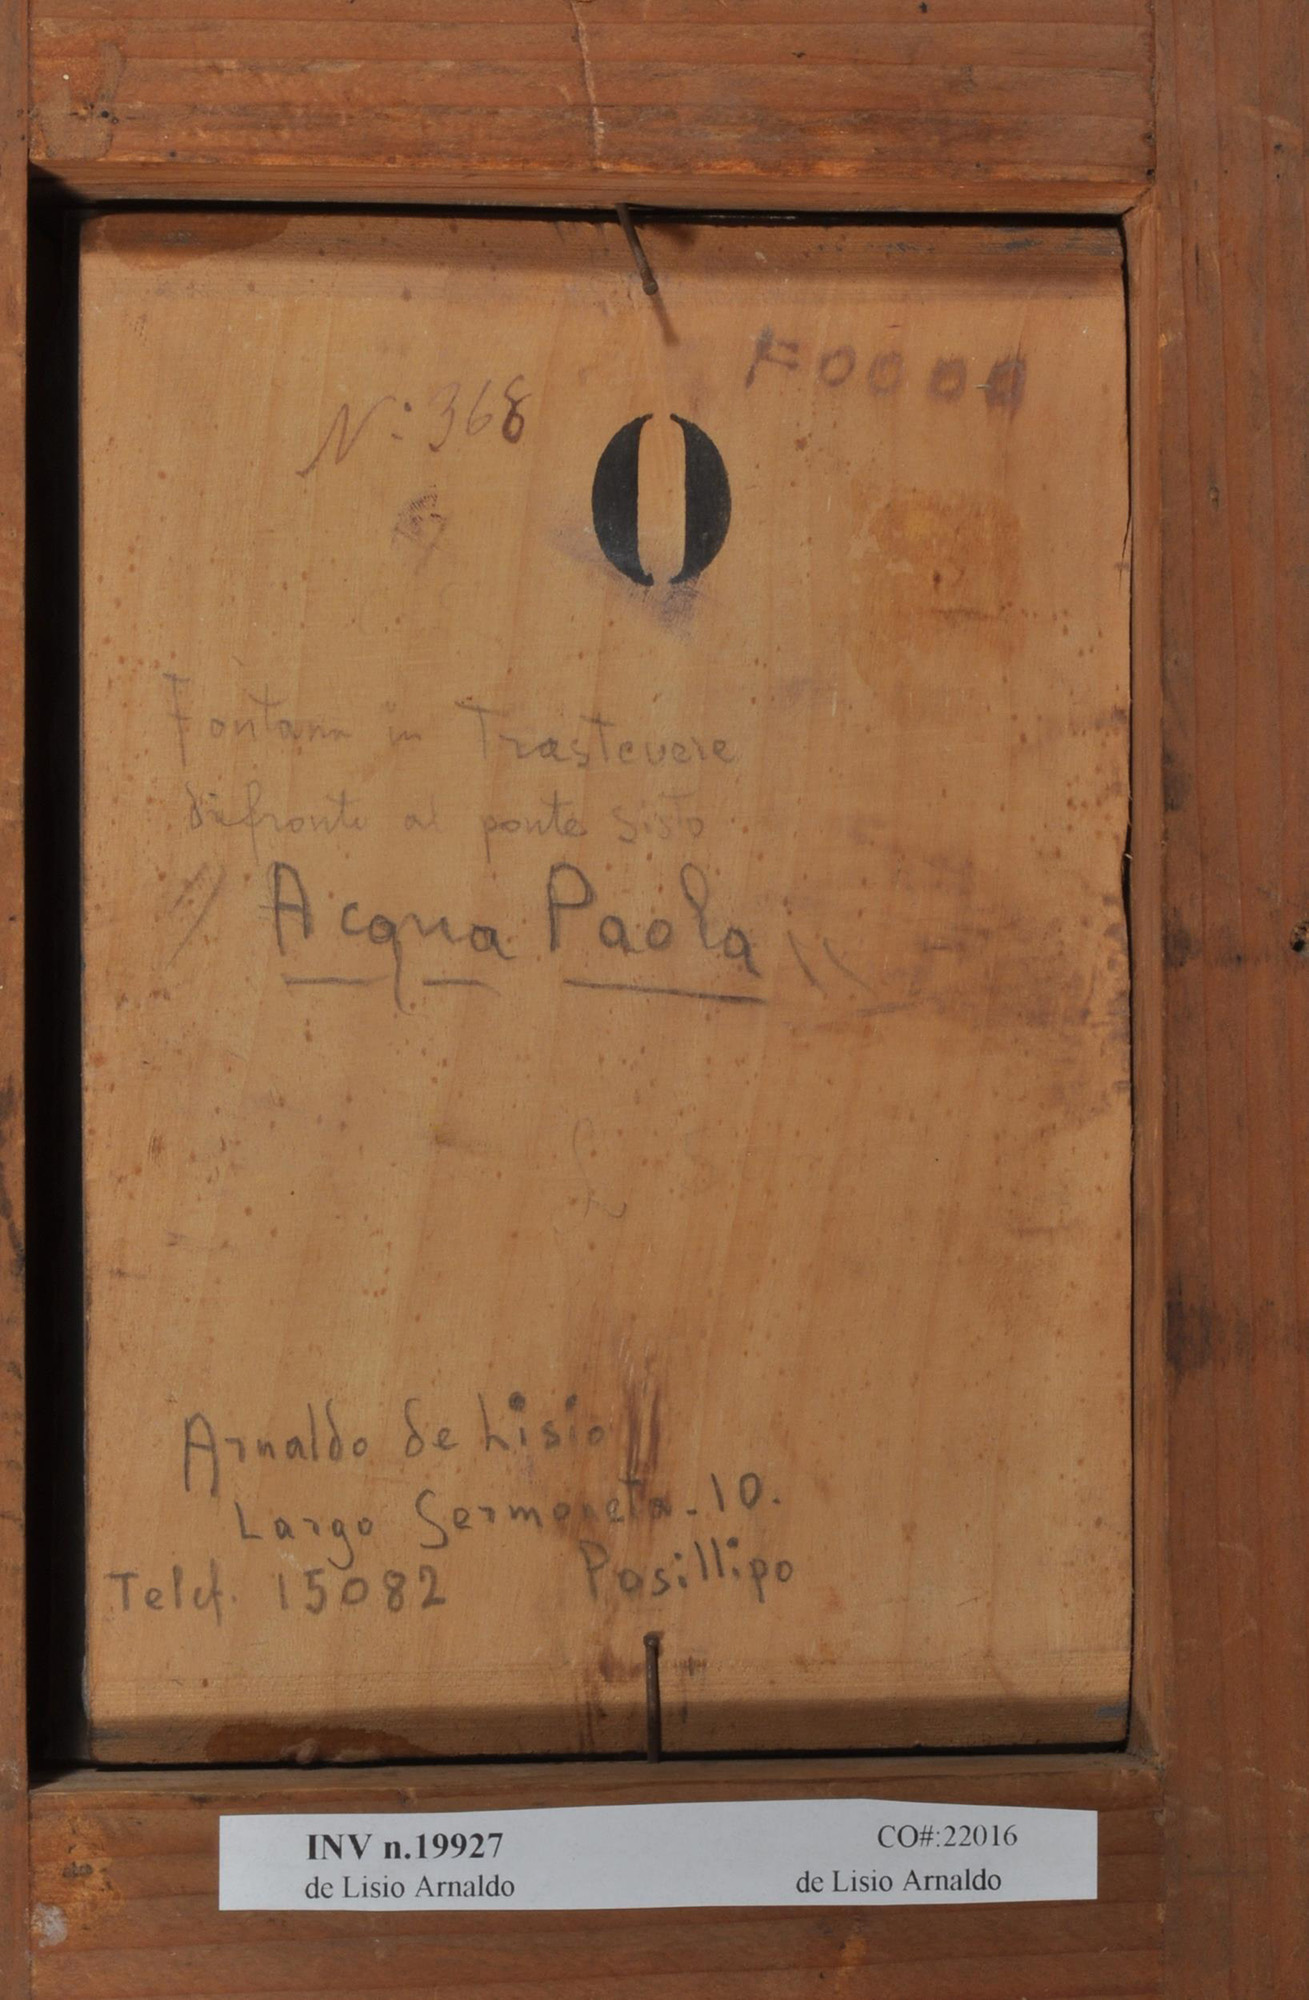 F0000
N: 368
0
Fontana in Trastevere
difronte al ponte Sisto
// Acqua Paola \\
Arnaldo de Lisio
Largo Sermoneta - 10.
Telef. 15082 Posillipo
INV n.19927 CO#:22016
de Lisio Arnaldo de Lisio Arnaldo